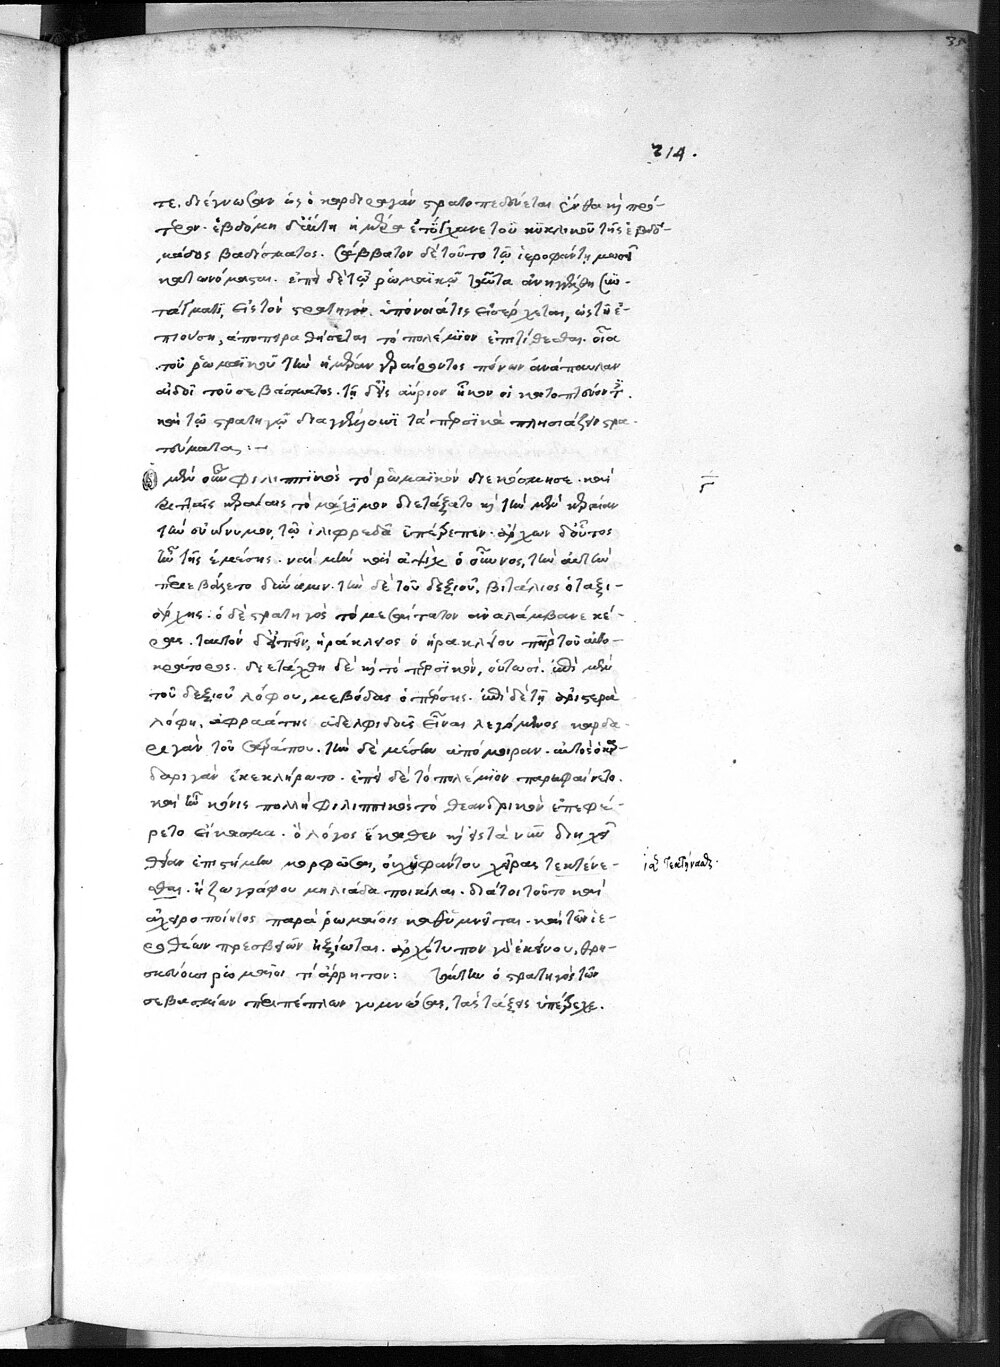 214.
τε. διέγνωσαν ὡς ὁ καρδαριγὰν στρατοπεδεύεται ἔνθα κ(αὶ) πρό-
τερον. ἑβδόμη δὲ αὕτη ἡ ἡμέρα ἐτύγχανε τοῦ κυκλικοῦ τῆς ἑβδο-
μάδος βαδίσματος. σάββατον δὲ τοῦτο τῷ ἱεροφάντῃ μωσῇ
κατωνόμασται. ἐπεὶ δὲ τῷ ῥωμαϊκῷ ταῦτα ἀνηγγέλθη συν-
τάγματι, εἰς τὸν στρατηγὸν ὑπόνοιά τις εἰσέρχεται, ὡς τῇ ἐ-
πιούσῃ, ἀποπειραθήσεται τὸ πολέμιον ἐπιτίθεσθαι. οἷα
τοῦ ῥωμαϊκοῦ τὴν ἡμέραν γεραίροντος πόνων ἀνάπαυλαν
αἰδοῖ τοῦ σεβάσματος. τῇ δ' εἰς αὔριον ἧκον οἱ κατοπτεύοντες.
καὶ τῷ στρατηγῷ διαγγέλουσι τὰ περσικὰ πλησιάζειν στρα-
τεύματα:
ὁ μὲν οὖν φιλιππικὸς τὸ ῥωμαϊκὸν διεκόσμησε. καὶ
τριτταῖς κεραίαις τὸ μάχιμον διετάξατο κ(αὶ) τὴν μὲν κεραίαν
τὴν εὐώνυμον, τῷ ἰλιφρεδᾷ ἐπέτρεπεν. ἄρχων δ' οὗτος
ἦν τῆς ἐμέσης. ναὶ μὴν καὶ ἀψὶχ ὁ οὗννος, τὴν αὐτὴν
περιεβάλετο δύναμιν. τὴν δὲ τοῦ δεξιοῦ, βιτάλιος ὁ ταξι-
άρχης. ὁ δὲ στρατηγὸς τὸ μεσαίτατον ἀναλάμβανε κέ-
ρας. ταυτὸν δ' εἰπεῖν, ἡράκλειος ὁ ἡρακλείου πατὴρ τοῦ αὐτο-
κράτορος. διετάχθη δὲ κ(αὶ) τὸ περσικὸν, οὑτωσί. ἐπὶ μὲν
τοῦ δεξιοῦ λόφου, μεβόδης ὁ πέρσης. ἐπὶ δὲ τῇ ἀριστερᾷ
λόφῃ, ἀφραάτης ἀδελφιδοῦς εἶναι λεγόμενος καρδα-
ριγὰν τοῦ σατράπου. τὴν δὲ μέσην ἀπόμοιραν. αὐτὸς ὁ καρ-
δαριγὰν ἐκεκλήρωτο. ἐπεὶ δὲ τὸ πολέμιον παρεφαίνετο.
καὶ ἦν κόνις πολλὴ φιλιππικὸς τὸ θεανδρικὸν ἐπεφέ-
ρετο εἴκασμα. ὃ λόγος ἔκαθεν κ(αὶ) εἰς τὰ νῦν διηχεῖ
θείαν ἐπιστήμην μορφῶσαι, οὐχ ὑφάντου χεῖρας τεκτένε-
σθαι. ἢ ζωγράφου μηλιάδα ποικίλαι. διά τοι τοῦτο καὶ
ἀχειροποίητος παρὰ ῥωμαίοις καθύμνηται. καὶ τῶν ἰ-
σοθέων πρεσβειῶν ἠξίωται. ἀρχέτυπον γὰρ ἐκείνου, θρη-
σκεύουσι ῥωμαῖοι τι ἄρρητον: ταύτην ὁ στρατηγὸς τῶν
σεβασμίων περιπέπλων γυμνώσας, τὰς τάξεις ὑπέτρεχε.
ϛ
ἴσ τεκτήνασθ.